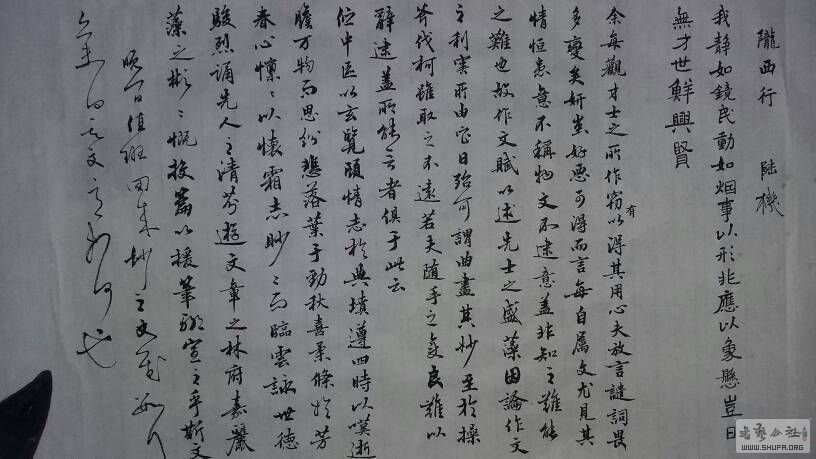 隴西行 陸機
我静如鏡民動如烟事以形兆應以象懸豈曰
無才世鮮興賢
余每觀才士之所作窃以有得其用心夫放言譴詞良
多變矣妍蚩好惡可得而言每自属文尤見其
情恒患意不稱物文不逮意盖非知之難能
之難也故作文賦以述先士之盛藻因論作文
之利害所由它日殆可謂曲盡其妙至於操
斧伐柯雖取之不遠若夫随手之變良難以
辭逮盖所能言者俱于此云
佇中区以玄覽頤情志於典墳遵四時以嘆逝
瞻万物而思紛悲落葉于勁秋喜柔條於芳
春心懍々以懷霜志眇々而臨雲詠世德
駿烈誦先人之清芬遊文章之林府嘉麗
藻之彬々慨投篇以援筆聊宣之乎斯文
值班回来抄之文